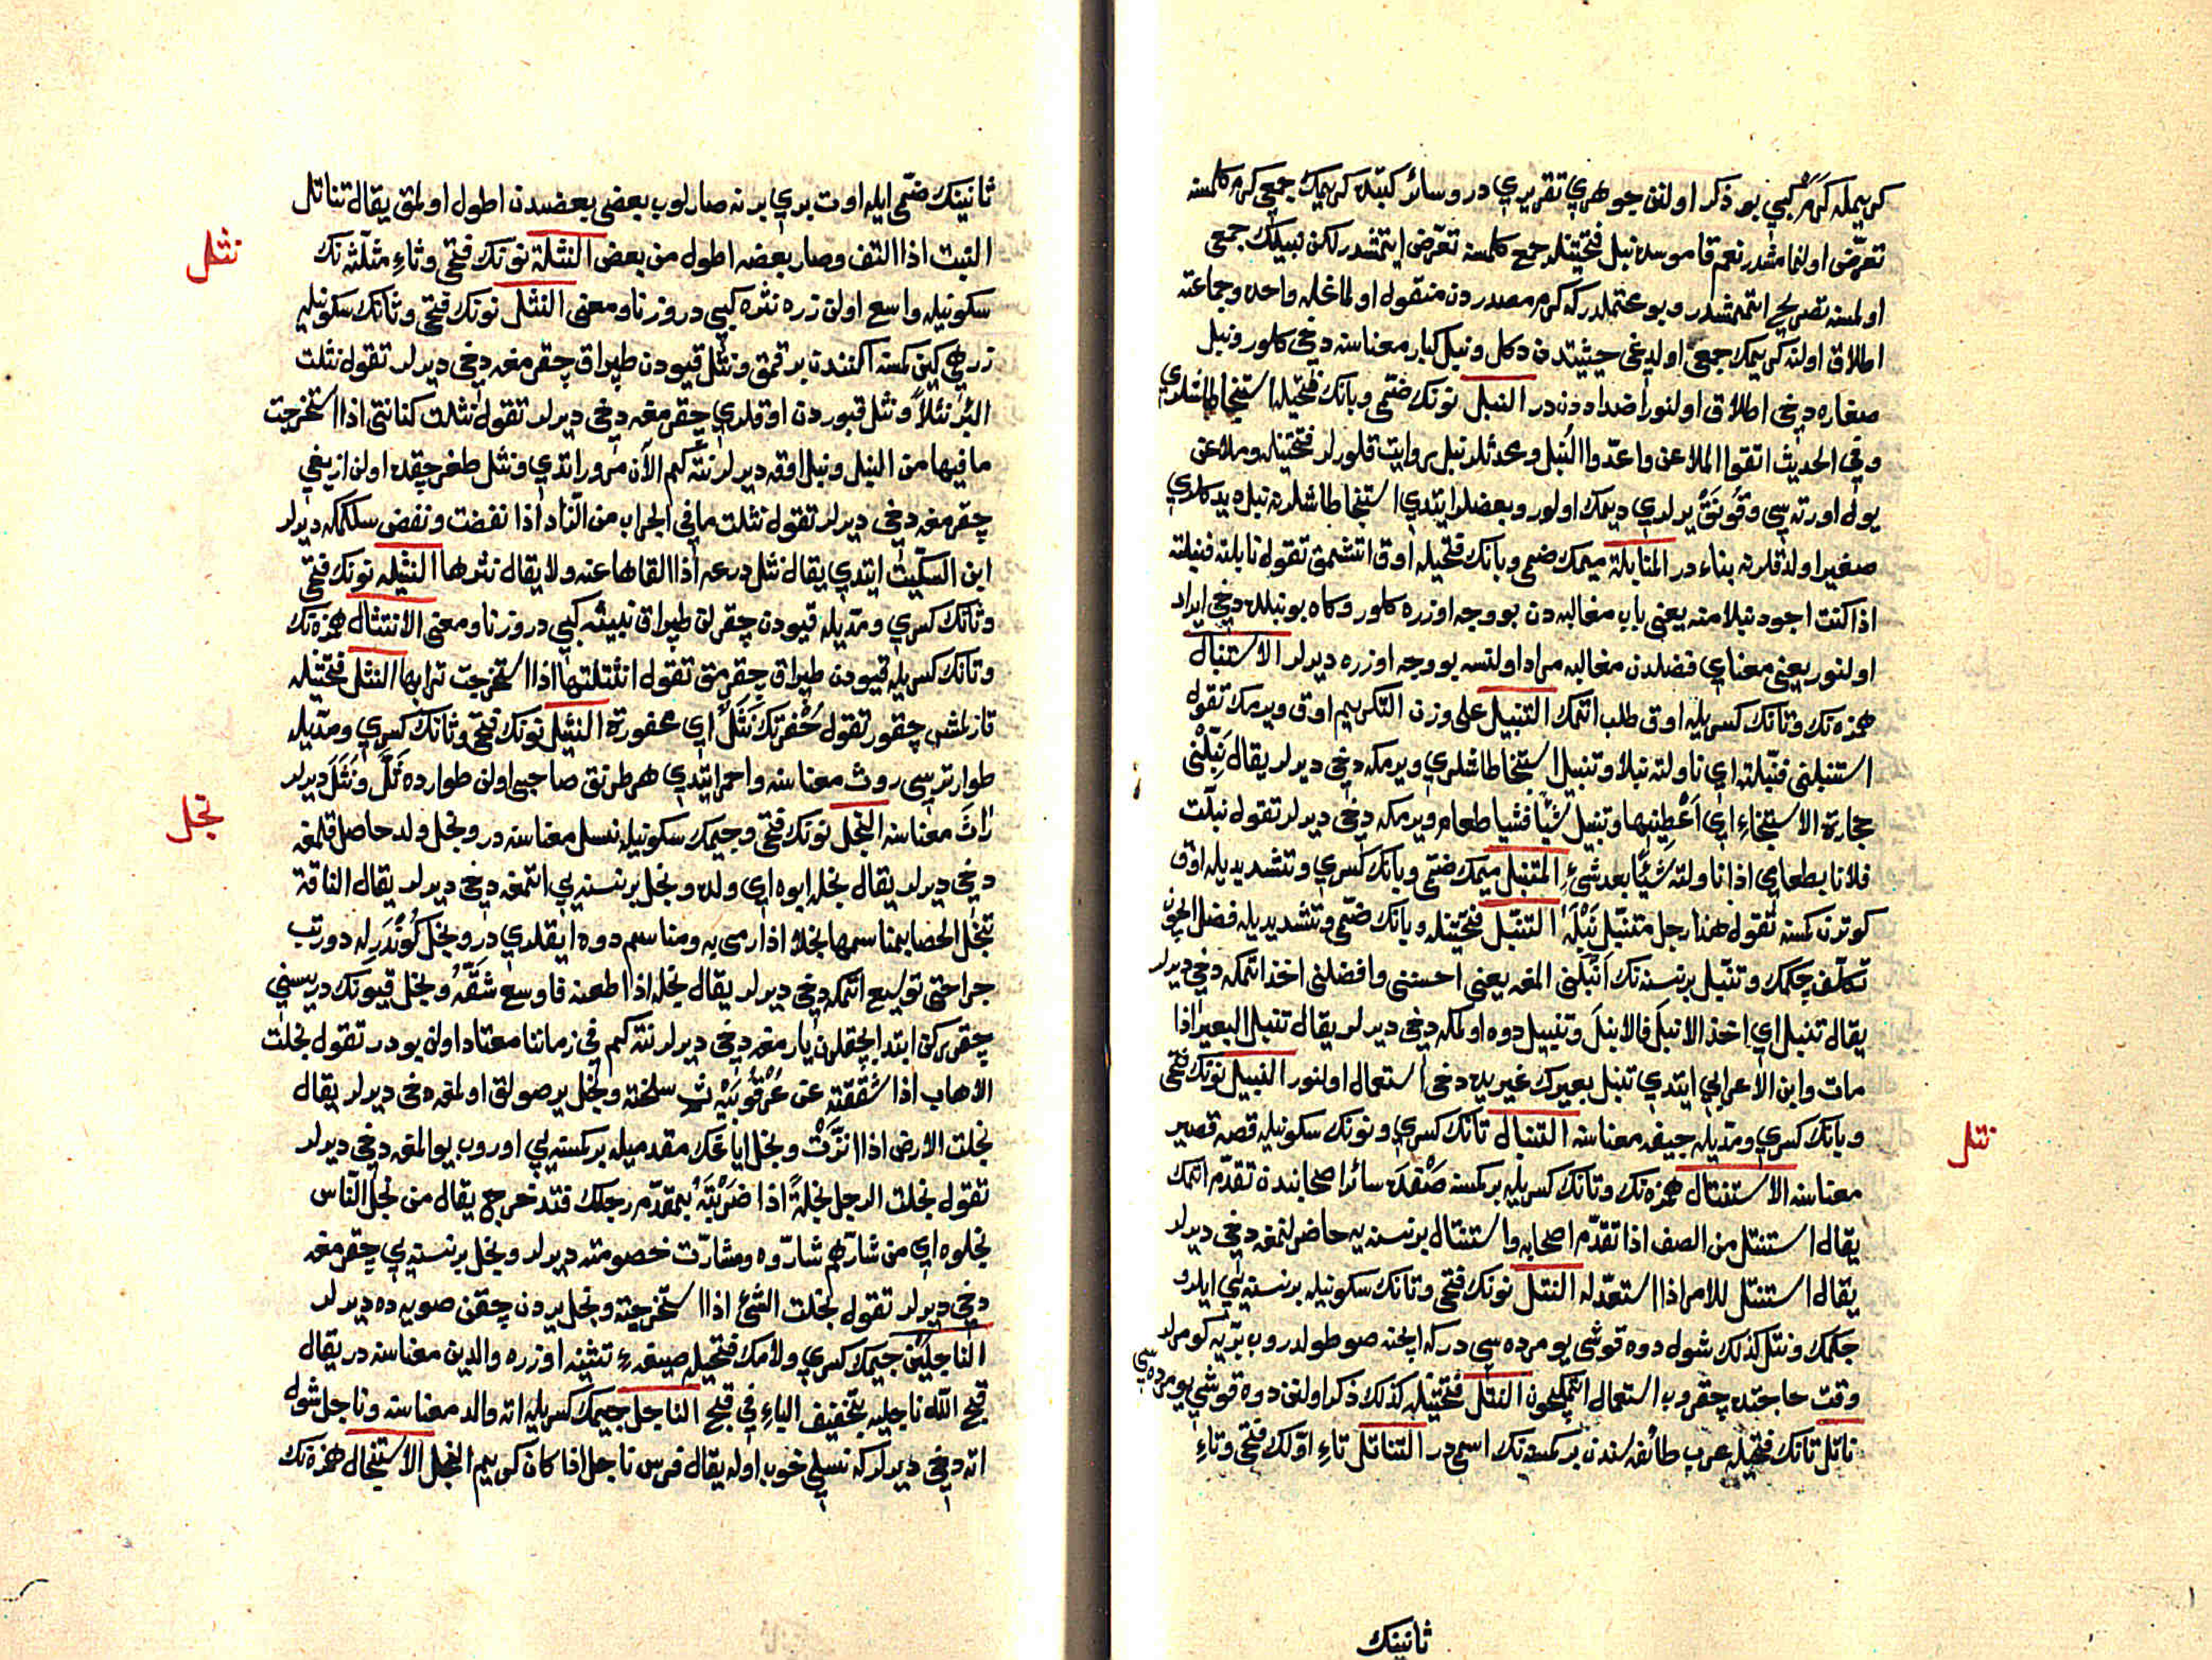 كريمله كرم كبي بو ذكر اولنن جوهري تقريري در وسائر كتبده كريمك جمعي كرم كلمسنه
تعرّض اولنمامشدر نعم قاموسده نبل فتحتينله جمع كلمسنه تعرّض ايتمشدر لكن نبيلك جمعي
اولمسنه تصريح ايتمشدر وبو محتملدر كه كرم مصدردن منقول اولماغله واحده وجماعته
اطلاق اولنه كريمك جمعي اولديغي حيثيتدن دكل ونبل كبار معناسنه دخي كلور ونبل
صغاره دخي اطلاق اولنور اضداددن در النبل نونك ضمّي وبانك فتحيله استنجا طاشلري
وفي الحديث اتقوا الملاعن واعدّوا النبل ومحدثلر نبل روايت قلورلر فتحتينله وملاعن
يول اورته سي وقونق يرلري ديمك اولور وبعضلر ايتدي استنجا طاشلرنه نبل ديدكلري
صغير اولدقلرنه بناء در المنابلة ميمك ضمي وبانك فتحيله اوق اتشمق تقول نابلته فنبلته
اذا كنت اجود نبلا منه يعني باب مغالبه دن بو وجه اوزره كلور وكاه بو نبلده دخي ايراد
اولنور يعني معناي فضلدن مغالبه مراد اولنسه بو وجه اوزره ديرلر الاستنبال
همزه نك وتانك كسريله اوق طلب اتمك التنبيل على وزن التكريم اوق ويرمك تقول
استنبلني فنبّلته اي ناولته نبلا وتنبيل استنجا طاشلري ويرمكه دخي ديرلر يقال نبّلني
حجارة الاستنجاء اي اعطنيها وتنبيل شيئا فشيئا طعام ويرمكه دخي ديرلر تقول نبّلت
فلانا بطعام اي اذا ناولته شيئًا بعد شيءٍ المتنبّل ميمك ضمّي وبانك كسري وتشديديله اوق
كوترن كمسنه تقول هذا رجل متنبّل نبله التنبّل فتحتينله وبانك ضمّي وتشديديله فضل ايچون
تكلّف چكمك وتنبّل بر نسنه نك انبلني المغه يعني احسنني وافضلني اخذ اتمكه دخي ديرلر
يقال تنبل اي اخذ الانبل فالانبل وتنبيل دوه اولمكه دخي ديرلر يقال تنبل البعير اذا
مات وابن الاعرابي ايتدي تنبل بعيرك غيريده دخي استعمال اولنور النبيل نونك فتحي
وبانك كسري ومدّيله جيفه معناسنه التنبال تانك كسري ونونك سكونيله قصه قصير
معناسنه الاستنتال همزه نك وتانك كسريله بر كمسنه صفده سائر اصحابندن تقدّم اتمك
يقال استنتل من الصف اذا تقدّم اصحابه واستنتال بر نسنه يه حاضر لنمغه دخي ديرلر
يقال استنتل للامر اذا استعدّ له النتل نونك فتحي وتانك سكونيله بر نسنه يي ايلرو
چكمك ونتل كذلك شول دوه قوشي يومرده سي در كه ايچنه صو طولدروب برّيه كومرلر
وقت حاجتده چقروب استعمال اتمكيچون النتل فتحتينله كذلك ذكر اولنن دوه قوشي يومرده سي
ناتل تانك فتحيله عرب طائفه سندن بر كمسنه نك اسمي در التناتل تاء اوّلك فتحي وتاء
نتل
ثانينك
ثانينك ضمّي ايله اوت بري برنه صارلوب بعضي بعضيدن اطول اولمق يقال تناتل
النبت اذا التف وصار بعضه اطول من بعض النثلة نونك فتحي وثاءِ مثلّثه نك
نثل
سكونيله واسع اولن زره نثره كبي در وزنا ومعنى النثل نونك فتحي وثانك سكونيله
زرهي كين كمسنه اكنندن برقمق ونثل قيودن طپراق چقرمغه دخي ديرلر تقول نثلت
البئر نثلاً ونثل قبوردن اوقلري چقرمغه دخي ديرلر تقول نثلت كنانتي اذا استخرجت
ما فيها من النبل ونبل اوقه ديرلر نته كم الآن مرور ايتدي ونثل طغرجقده اولن ازيغي
چقرمغه دخي ديرلر تقول نثلت ما في الجراب من الزّاد اذا نفضت ونفض سلكمكه ديرلر
ابن السكّيت ايتدي يقال نثل درعه اذا القاها عنه ولا يقال نثرها النثيله نونك فتحي
وثانك كسري ومدّيله قيودن چقرلن طپراق نبيثه كبي در وزنا ومعنى الانتثال همزه نك
وتانك كسريله قيودن طپراق چقرمق تقول انتثلتها اذا استخرجت ترابها النثل فتحتينله
قازلمش چقور تقول حفرتك نثل اي محفورة النثيل نونك فتحي وثانك كسري ومدّيله
طوار ترسي روث معناسنه واحمر ايتدي هر طرنق صاحبي اولن طوارده ثلّ ونثل ديرلر
راث معناسنه النجل نونك فتحي وجيمك سكونيله نسل معناسنه در ونجل ولد حاصل قلمغه
نجل
دخي ديرلر يقال نجله ابوه اي ولده ونجل بر نسنه يي اتمغه دخي ديرلر يقال الناقة
تنجل الحصا بمناسمها نجلا اذا رمى به ومناسم دوه ايقلري در ونجل كوندرله دورتب
جراحتي توسيع اتمكه دخي ديرلر يقال نجله اذا طعنه فاوسع شقّه ونجل قيونك دريسني
چقرركن ابتدا بچقلرن يارمغه دخي ديرلر نته كم في زماننا معتاد اولن بودر تقول نجلت
الاهاب اذا شققته عن عرقوبيه ثمّ سلخته ونجل ير صولق اولمغه دخي ديرلر يقال
نجلت الارض اذا نزّت ونجل اياغك مقدميله بر كمسنه يي اوروب يوالمغه دخي ديرلر
تقول نجلت الرجل نجلةً اذا ضربته بمقدّم رجلك فتدحرج يقال من نجل النّاس
نجلوه اي من شارّهم شارّوه ومشارّت خصومته ديرلر ونجل بر نسنه يي چقرمغه
دخي ديرلر تقول نجلت الشئ اذا استخرجته ونجل يردن چقن صويه ده ديرلر
الناجلين جيمك كسري ولامك فتحيله صيغهء تثنيه اوزره والدين معناسنه در يقال
قبح الله ناجليه بتخفيف الباء في قبح الناجل جيمك كسريله اته والد معناسنه وناجل شول
اته دخي ديرلر كه نسلي خوب اوله يقال فرس ناجل اذا كان كريم النجل الاستنجال همزه نك